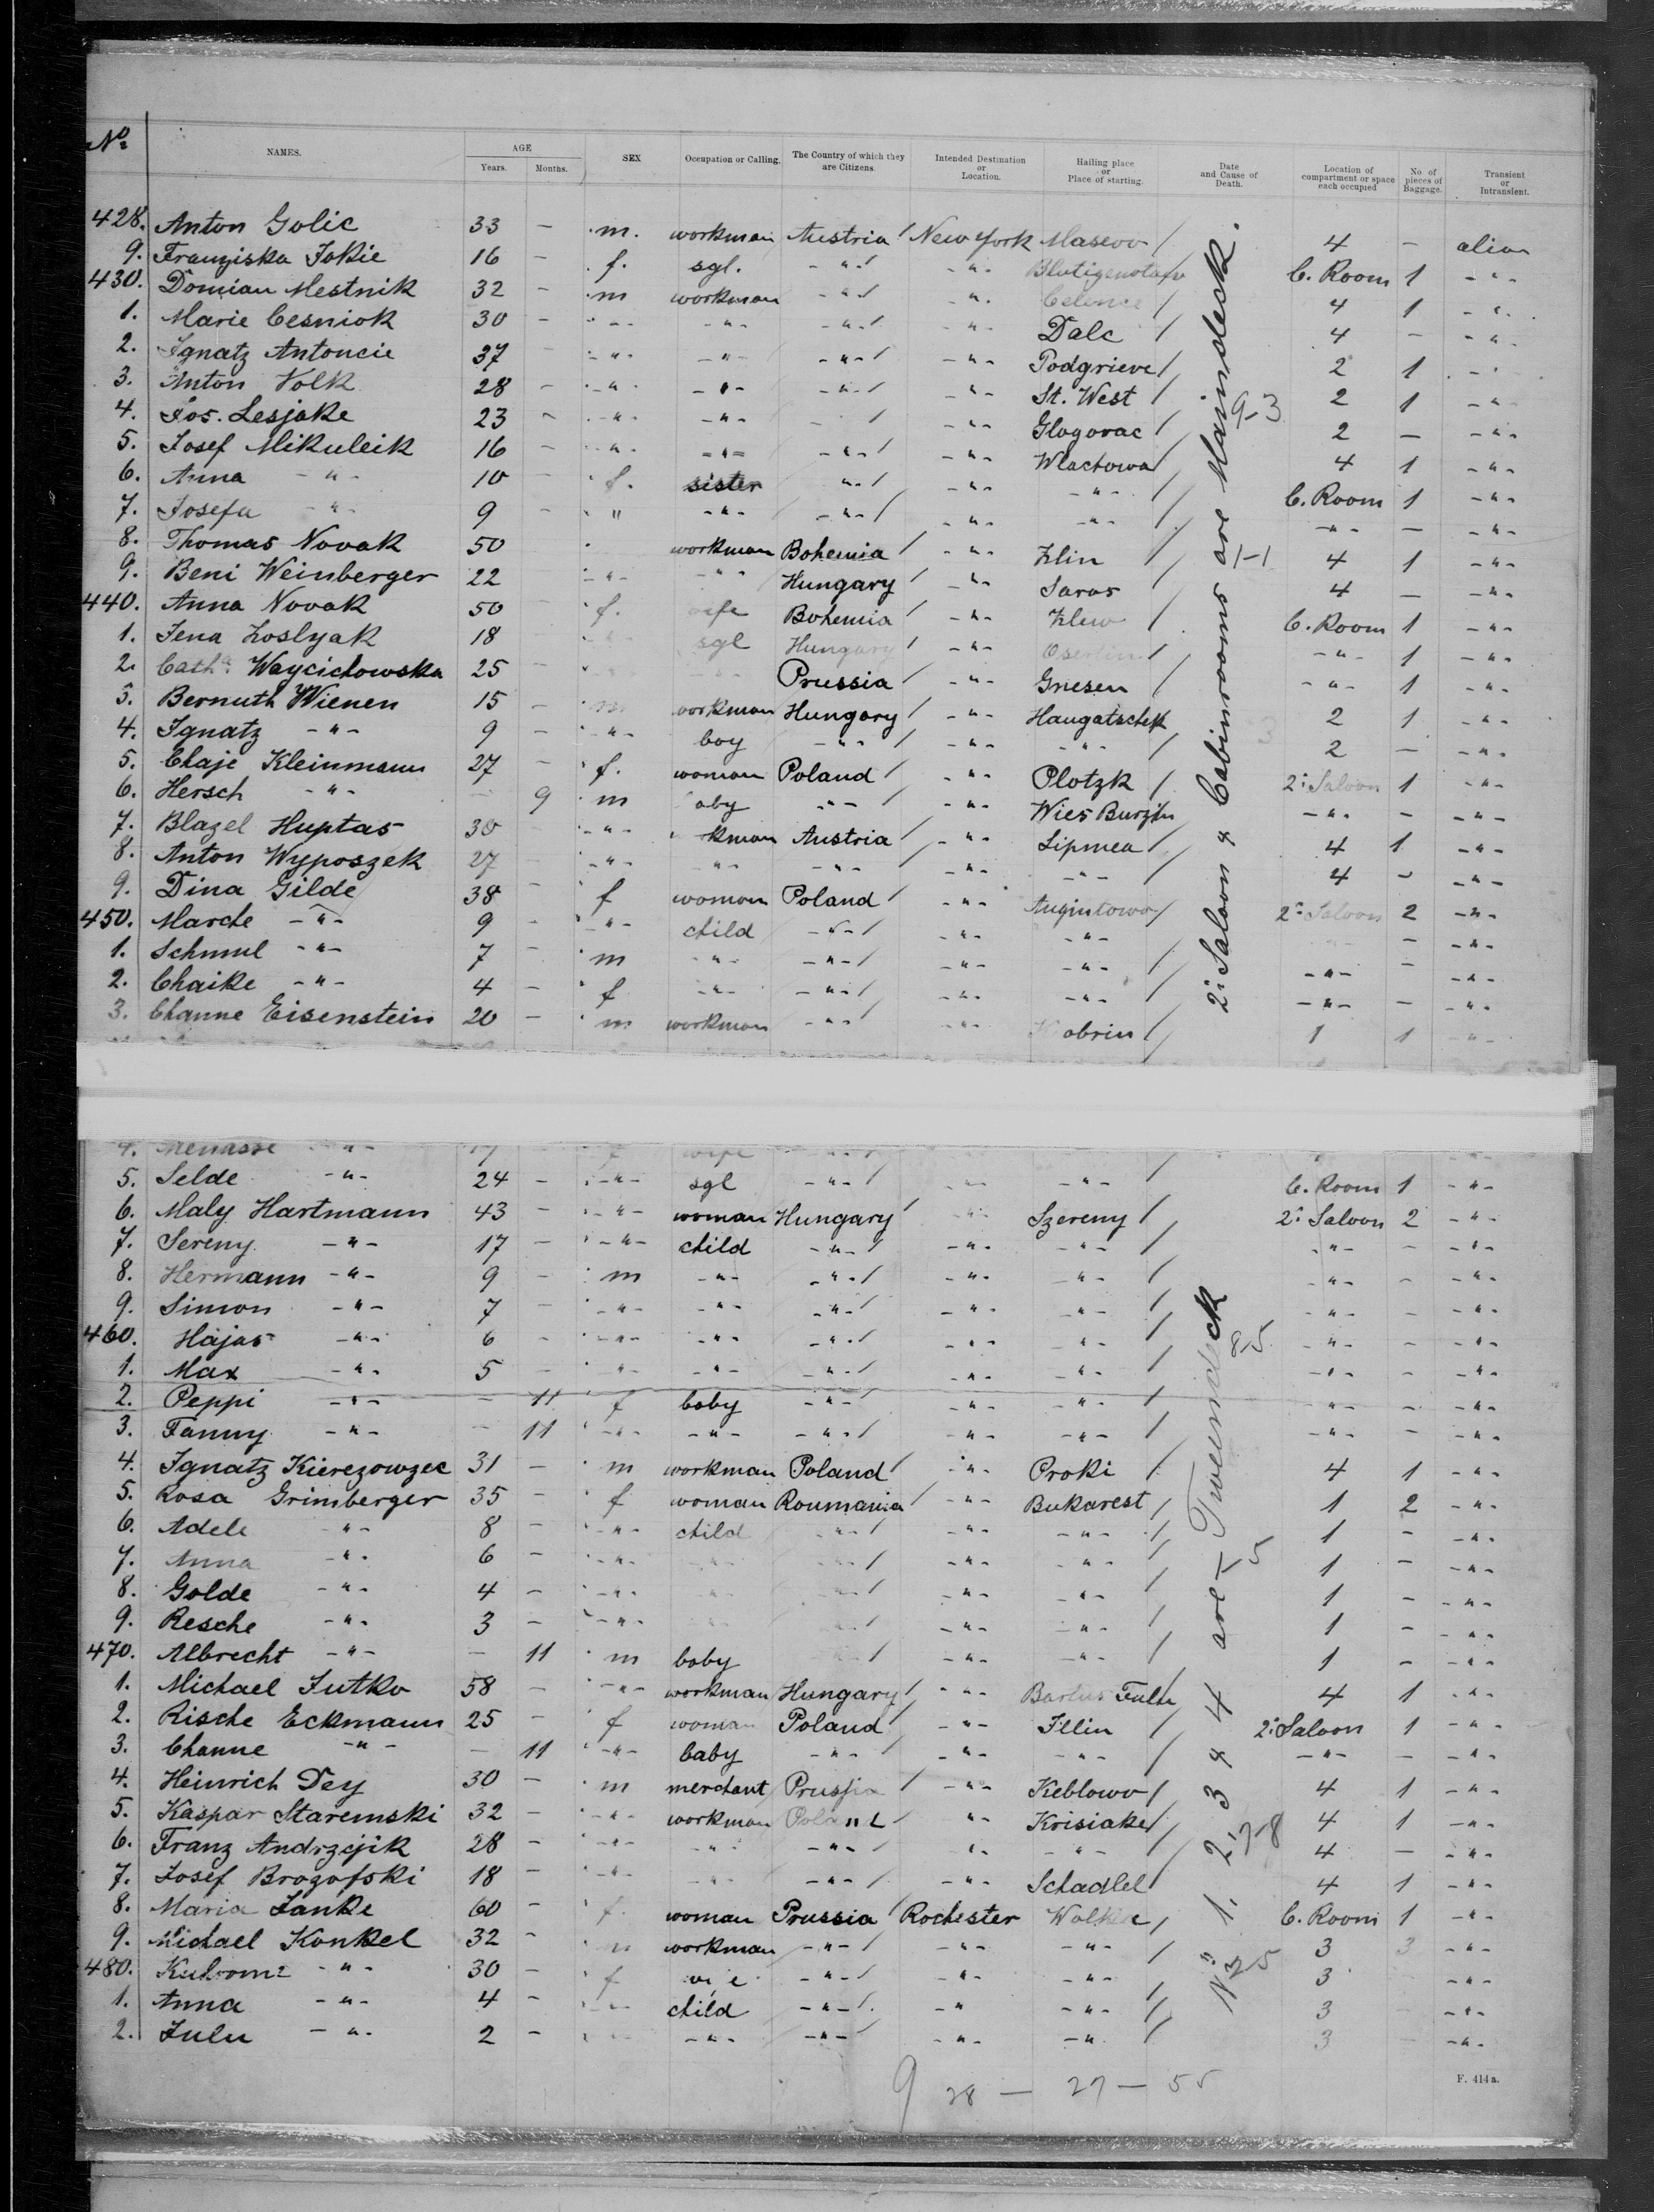 No NAMES. AGE Years. Months. SEX Occupation or Calling. The Country of which they are Citizens. Intended Destination or Location. Hailing place or Place of starting. Date and Cause of Death. Location of compartment or space each occupied No. of pieces of Baggage. Transient or Intransient.
428. Anton Golic 33 – m. workman Austria / New York /
9. Franziska Jakie 16 – f. sgl. -"- / -"- C. Room 1 -"-
430. Domian Mestnik 32 – m workman -"- / -"- Celence / 4 1 -"-
1. Marie Cesniok 30 – -"- -"- -"- / -"- Dalc / 4 – -"-
2. Ignatz Antoncie 37 – -"- -"- -"- / -"- Podgrieve / 2 1 -"-
3. Anton Volk 28 – -"- -"- -"- / -"- St. West / 2 1 -"-
4. Jos. Lesjake 23 – -"- -"- - / -"- Glogovac / 2 – -"-
5. Josef Mikuleik 16 – -"- -"- -"- / -"- Wlachowa / 4 1 -"-
6. Anna -"- 10 – f. sister -"- / -"- -"- / C. Room 1 -"-
7. Josefa -"- 9 – " -"- -"- / -"- -"- / -"- – -"-
8. Thomas Novak 50 workman Bohemia / -"- Zlin / 4 1 -"-
9. Beni Weinberger 22 -"- -"- Hungary / -"- Saros / 4 – -"-
440. Anna Novak 50 f. wife Bohemia / -"- / C. Room 1 -"-
1. Jena Loslyak 18 sgl Hungary / -"- / -"- 1 -"-
2. Cath. Waycichowska 25 – Prussia / -"- Gnesen / -"- 1 -"-
3. Bernuth Wienen 15 – m workman Hungary / -"- Haugatschek / 2 1 -"-
4. Ignatz -"- 9 – -"- boy -"- / -"- -"- / 2 – -"-
5. Chaje Kleinmann 27 – f. woman Poland / -"- Plotzk / 2: Saloon 1 -"-
6. Hersch -"- – 9 m baby -"- / -"- Wies / -"- – -"-
7. Blazel Huptas 30 -"- workman Austria / -"- Lipmea / 4 1 -"-
8. Anton Wyposzek 27 -"- -"- -"- / -"- -"- / 4 – -"-
9. Dina Gilde 38 – f woman Poland / -"- Augustowo / 2: Saloon 2 -"-
450. Marche -"- 9 – -"- child -"- / -"- -"- / – -"-
1. Schmul -"- 7 – m -"- -"- / -"- -"- / -"- – -"-
2. Chaike -"- 4 – f -"- -"- / -"- -"- / -"- – -"-
3. Channe Eisenstein 20 – m workman -"- / -"- Kobrin / 1 1 -"-
2: Saloon & Cabinrooms are Maindeck.
9-3
1-1
4. Menasse -"- f wife -"- /
5. Selde -"- 24 – -"- sgl -"- / -"- / C. Room 1 -"-
6. Maly Hartmann 43 – -"- woman Hungary / -"- Szereny / 2: Saloon 2 -"-
7. Sereny -"- 17 – -"- child -"- / -"- -"- / -"- – -"-
8. Hermann -"- 9 – m -"- -"- / -"- -"- / -"- – -"-
9. Simon -"- 7 – -"- -"- -"- / -"- -"- / -"- – -"-
460. Hajas -"- 6 – -"- -"- -"- / -"- -"- / -"- – -"-
1. Max -"- 5 – -"- -"- -"- / -"- -"- / -"- – -"-
2. Peppi -"- – 11 f baby -"- / -"- -"- / -"- – -"-
3. Fanny -"- – 11 -"- -"- -"- / -"- -"- / -"- – -"-
4. Ignatz Kierezowzec 31 – m workman Poland / -"- Proki / 4 1 -"-
5. Rosa Grimberger 35 – f woman Roumania / -"- Bukarest / 1 2 -"-
6. Adele -"- 8 – -"- child -"- / -"- -"- / 1 – -"-
7. Anna -"- 6 – -"- -"- / -"- -"- / 1 – -"-
8. Golde -"- 4 – -"- -"- / -"- -"- / 1 – -"-
9. Resche -"- 3 – -"- / -"- -"- / 1 – -"-
470. Albrecht -"- – 11 m baby / -"- -"- / 1 – -"-
1. Michael Jutko 58 – -"- workman Hungary / -"- / 4 1 -"-
2. Rische Eckmann 25 – f woman Poland / -"- Illin / 2: Saloon 1 -"-
3. Channe -"- – 11 -"- baby -"- / -"- -"- / -"- – -"-
4. Heinrich Dey 30 – m merchant Prussia / -"- Keblowo / 4 1 -"-
5. Kaspar Staremski 32 – -"- workman Poland / -"- Krisiake / 4 1 -"-
6. Franz Andrzejik 28 – -"- -"- -"- / -"- -"- / 4 – -"-
7. Josef Brozofski 18 – -"- -"- -"- / -"- Schadlel / 4 1 -"-
8. Maria Janke 60 – f. woman Prussia / Rochester / C. Room 1 -"-
9. Michael Konkel 32 – m workman -"- / -"- -"- / 3 3 -"-
480. -"- 30 – f wife -"- / -"- -"- / 3 -"-
1. Anna -"- 4 – -"- child -"- / -"- -"- / 3 -"-
2. Julu -"- 2 – -"- -"- / -"- -"- / 3 -"-
No 1, 2, 3 & 4 are Tweendeck
8-5
1-5
7-8
3-5
9 28 — 27 — 55
F. 414a.